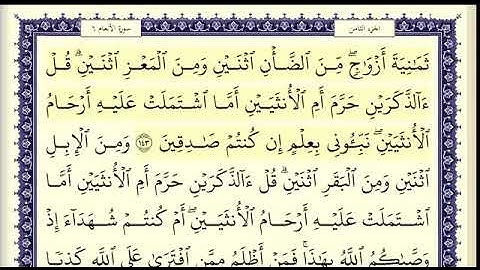 الجزء الثامن سورة الأنعام ٦
ثَمَٰنِيَةَ أَزْوَٰجٍۖ مِّنَ ٱلضَّأْنِ ٱثْنَيْنِ وَمِنَ ٱلْمَعْزِ ٱثْنَيْنِۗ قُلْ
ءَآلذَّكَرَيْنِ حَرَّمَ أَمِ ٱلْأُنثَيَيْنِ أَمَّا ٱشْتَمَلَتْ عَلَيْهِ أَرْحَامُ
ٱلْأُنثَيَيْنِۖ نَبِّـُٔونِى بِعِلْمٍ إِن كُنتُمْ صَٰدِقِينَ ١٤٣ وَمِنَ ٱلْإِبِلِ
ٱثْنَيْنِ وَمِنَ ٱلْبَقَرِ ٱثْنَيْنِۗ قُلْ ءَآلذَّكَرَيْنِ حَرَّمَ أَمِ ٱلْأُنثَيَيْنِ أَمَّا
ٱشْتَمَلَتْ عَلَيْهِ أَرْحَامُ ٱلْأُنثَيَيْنِۖ أَمْ كُنتُمْ شُهَدَآءَ إِذْ
وَصَّىٰكُمُ ٱللَّهُ بِهَٰذَاۚ فَمَنْ أَظْلَمُ مِمَّنِ ٱفْتَرَىٰ عَلَى ٱللَّهِ كَذِبًا